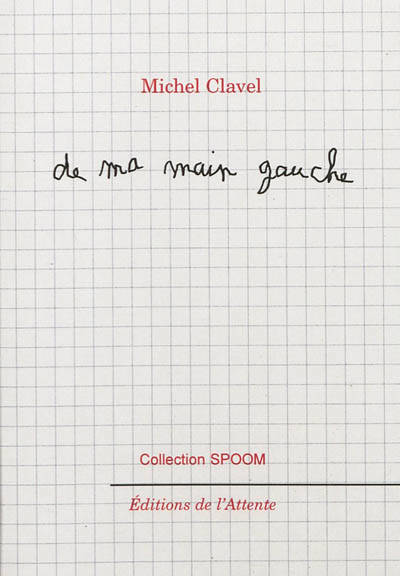 Michel Clavel
de ma main gauche
Collection SPOOM
Éditions de l'Attente